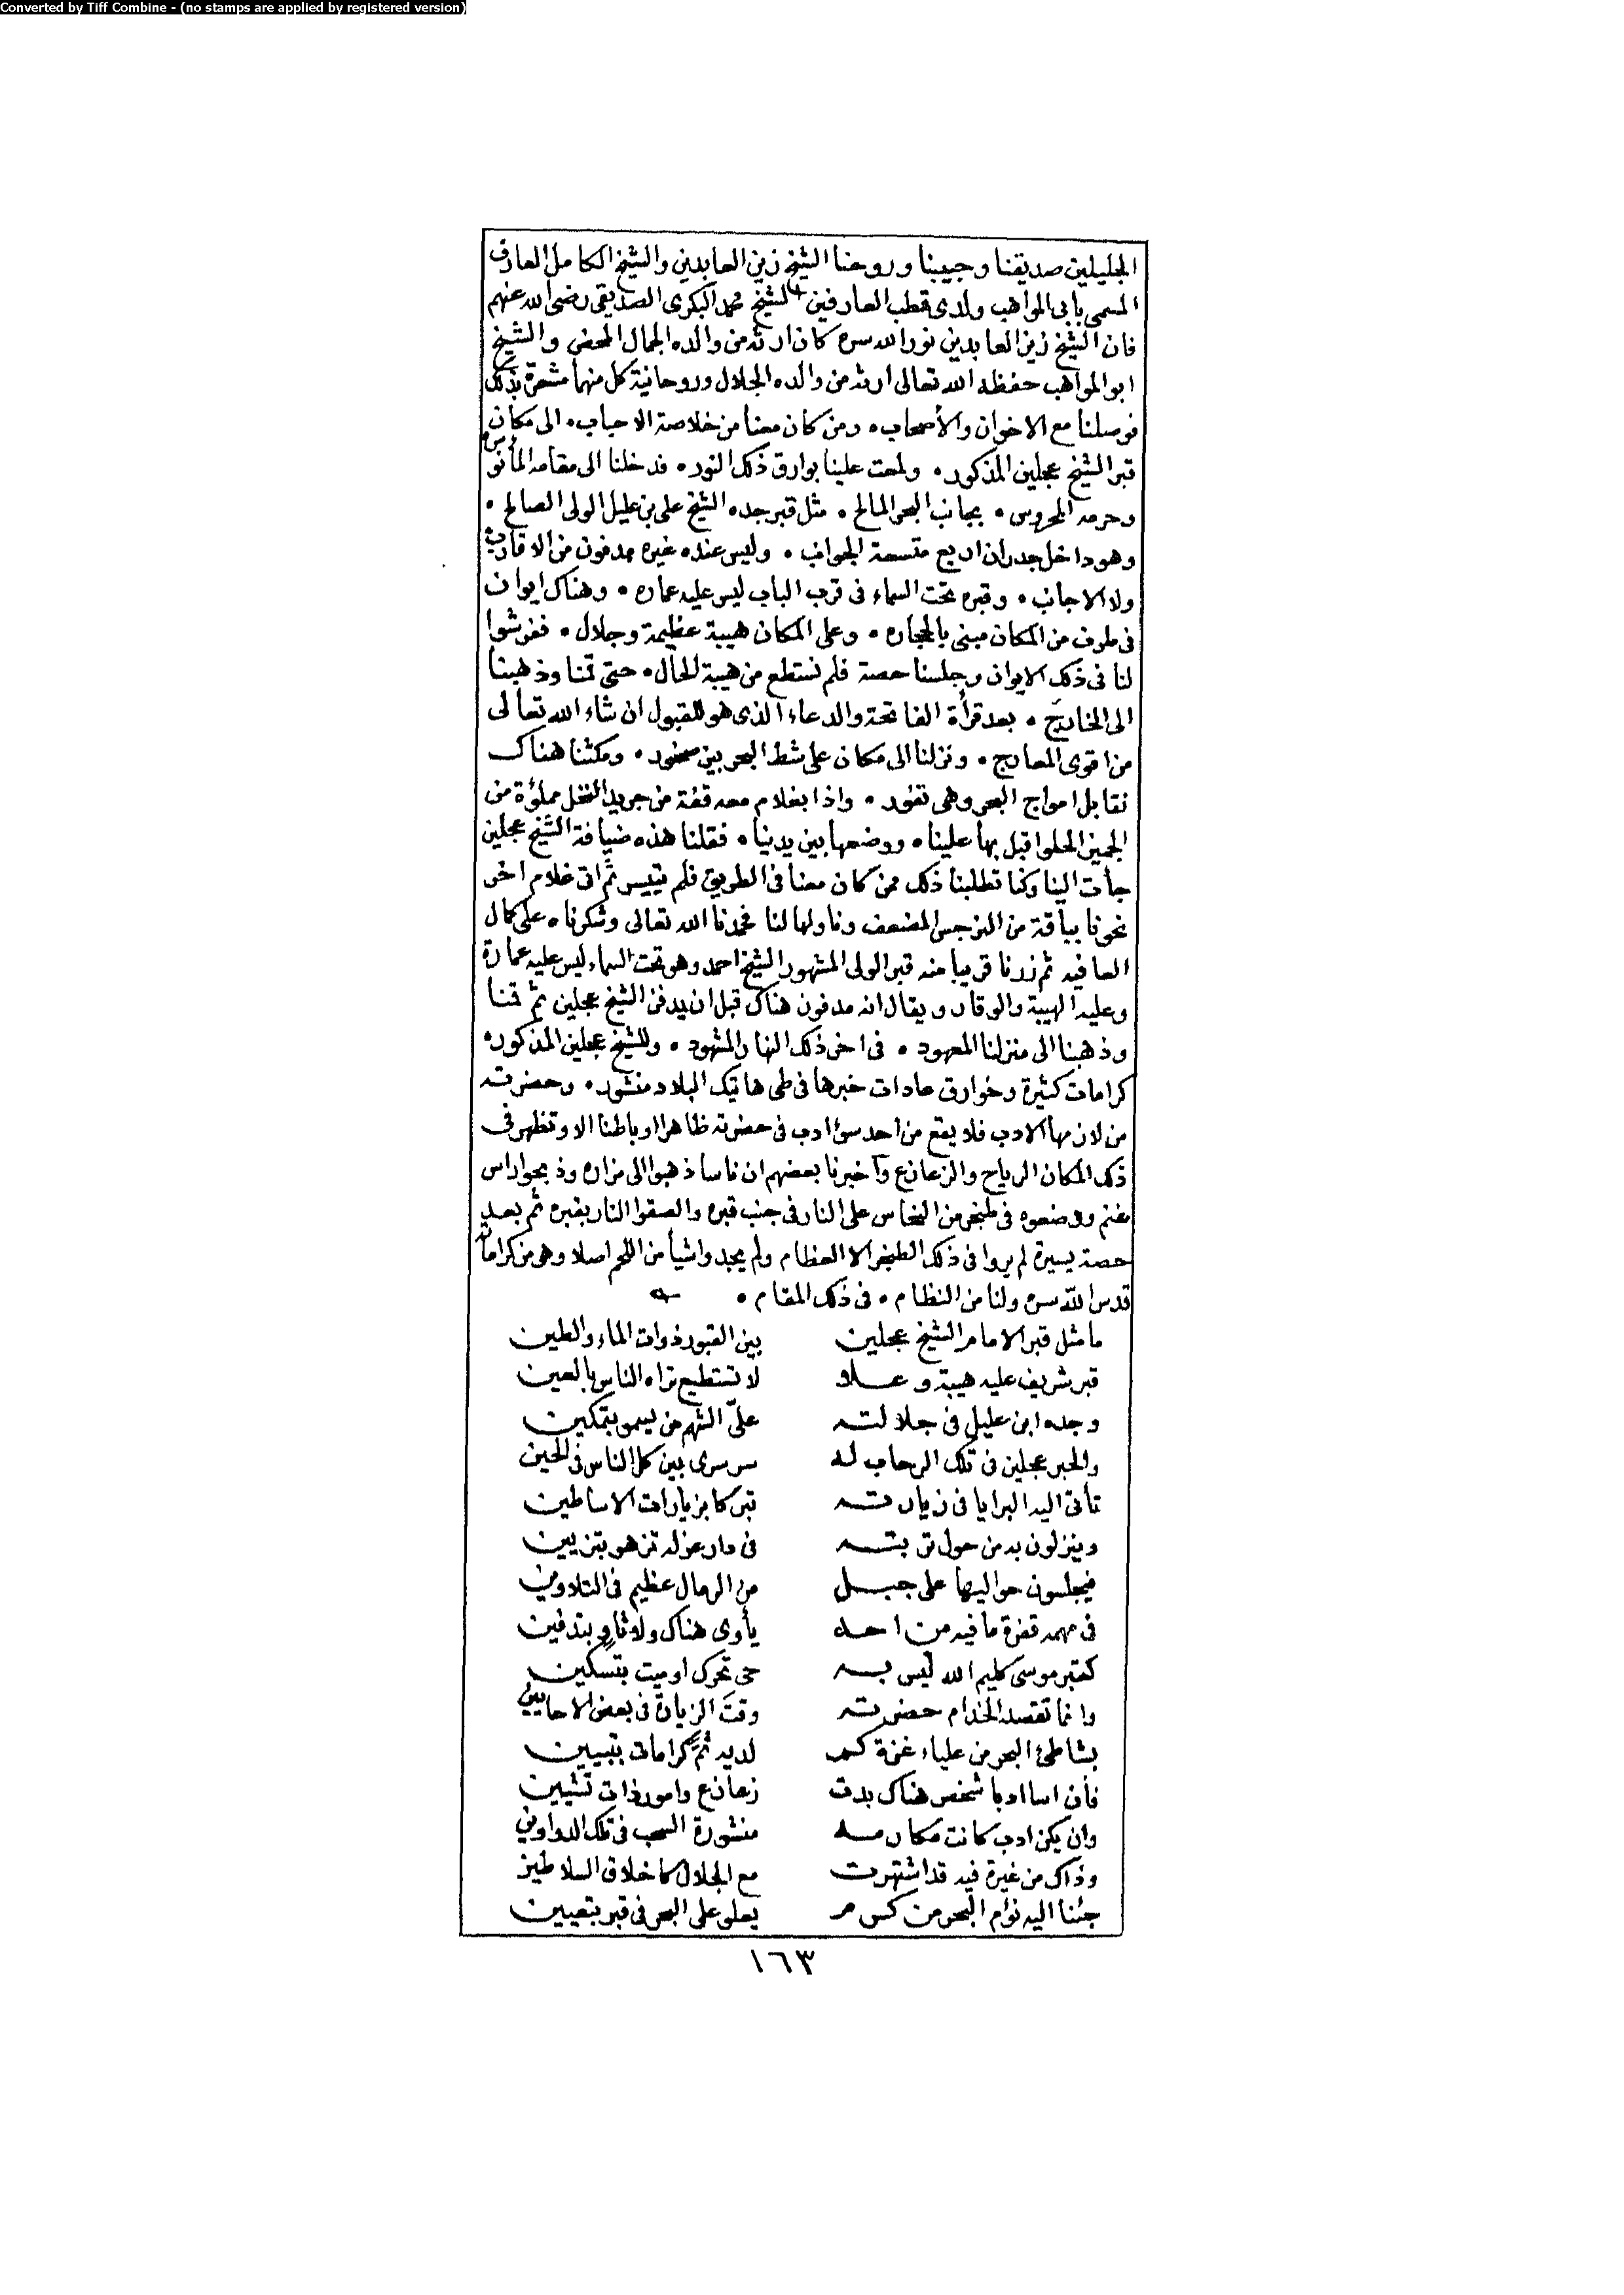 Converted by Tiff Combine - (no stamps are applied by registered version)
الجليلين صديقنا وحبيبنا وروحنا الشيخ زين العابدين والشيخ الكامل العارف
المسمى بابى المواهب ولدى قطب العارفين الشيخ محمد البكرى الصديقى رضى الله عنهم
فان الشيخ زين العابدين نور الله سره كان ارثه من والده الجمال المحض والشيخ
ابو المواهب حفظه الله تعالى ارثه من والده الجلال وروحانية كل منهما مشعرة بذلك
فوصلنا مع الاخوان والأصحاب ۰ ومن كان معنا من خلاصة الاحباب ۰ الى مكان
قبر الشيخ عجلين المذكور ۰ ولمعت علينا بوارق ذلك النور ۰ فدخلنا الى مقامه المأنوس
وحرمه المحروس ۰ بجانب البحر المالح ۰ مثل قبر جده الشيخ على بن عليل الولى الصالح ۰
وهو داخل جدران اربع متسعة الجوانب ۰ وليس عنده غيره مدفون من الاقارب
ولا الاجانب ۰ وقبره تحت السماء فى قرب الباب ليس عليه عماره ۰ وهناك ايوان
فى طرف من المكان مبنى بالحجاره ۰ وعلى المكان هيبة عظيمة وجلال ۰ ففرشوا
لنا فى ذلك الايوان وجلسنا حصة فلم نستطع من هيبة الحال ۰ حتى قمنا وذهبنا
الى الخارج ۰ بعد قرأة الفاتحة والدعاء الذى هو للقبول ان شاء الله تعالى
من اقوى المعارج ۰ ونزلنا الى مكان على شط البحر بين صخور ۰ ومكثنا هناك
نقابل امواج البحر وهى تفور ۰ واذا بغلام معه قفة من جريد النخل مملؤة من
الجميز الحلو اقبل بها علينا ۰ ووضعها بين يدينا ۰ فقلنا هذه ضيافة الشيخ عجلين
جأت الينا وكنا تطلبنا ذلك ممن كان معنا فى الطريق فلم يتيسر ثم اتى غلام اخر
نحونا بباقة من النرجس المضعف وناولها لنا فحمدنا الله تعالى وشكرناه على كمال
العافيه ثم زرنا قريبا منه قبر الولى المشهور الشيخ احمد وهو تحت السماء ليس عليه عمارة
وعليه الهيبة والوقار ويقال انه مدفون هناك قبل ان يدفن الشيخ عجلين ثم قمنا
وذهبنا الى منزلنا المعهود ۰ فى اخر ذلك النهار المشهود ۰ وللشيخ عجلين المذكور
كرامات كثيرة وخوارق عادات خبرها فى طى هاتيك البلاد منشور ۰ وحضرته
من لازمها الادب فلا يقع من احد سؤ ادب فى حضرته ظاهرا او باطنا الا وتظهر فى
ذلك المكان الرياح والزعازع وأخبرنا بعضهم ان ناسا ذهبوا الى مزاره وذبحوا راس
غنم ووضعوه فى طنجر من النحاس على النار فى جنب قبره والصقوا النار بقبره ثم بعد
حصة يسيرة لم يروا فى ذلك الطنجر الا العظام ولم يجدوا شيأ من اللحم اصلا وهو من كراماته
قدس الله سره ولنا من النظام ۰ فى ذلك المقام ۰
ما مثل قبر الامام الشيخ عجلين بين القبور ذوات الماء والطين
قبر شريف عليه هيبة وعلا لا تستطيع تراه الناس بالعين
وجده ابن عليل فى جلالته علىّ الشهم من يسمو بتمكين
والحبر عجلين فى تلك الرحاب له سر سرى بين كل الناس فى الحين
تأتى اليه البرايا فى زيارته تبركا بزيارات الاساطين
وينزلون به من حول تربته فى دار عزله تزهو بتزيين
فيجلسون حواليها على جبل من الرمال عظيم فى التلاوين
فى مهمه قفرة ما فيه من احد يأوى هناك ولا ثاوٍ بتدفين
كقبر موسى كليم الله ليس به حى تحرك او ميت بتسكين
وانما تقصد الخدام حضرته وقت الزيارة فى بعض الاحايين
بشاطئ البحر من علياء غزة كم لديه ثَمَّ كرامات بتبيين
فان اسا ادبا شخص هناك بدت زعازع وامور ذات تشيين
وان يكن ادب كانت مكارمه منشورة السحب فى تلك الدواوين
وذاك من غيرة فيه قد اشتهرت مع الجلال كاخلاق السلاطين
جئنا اليه نؤم البحر من كرم يعلو على البحر فى قبر بتعيين
١٦٣